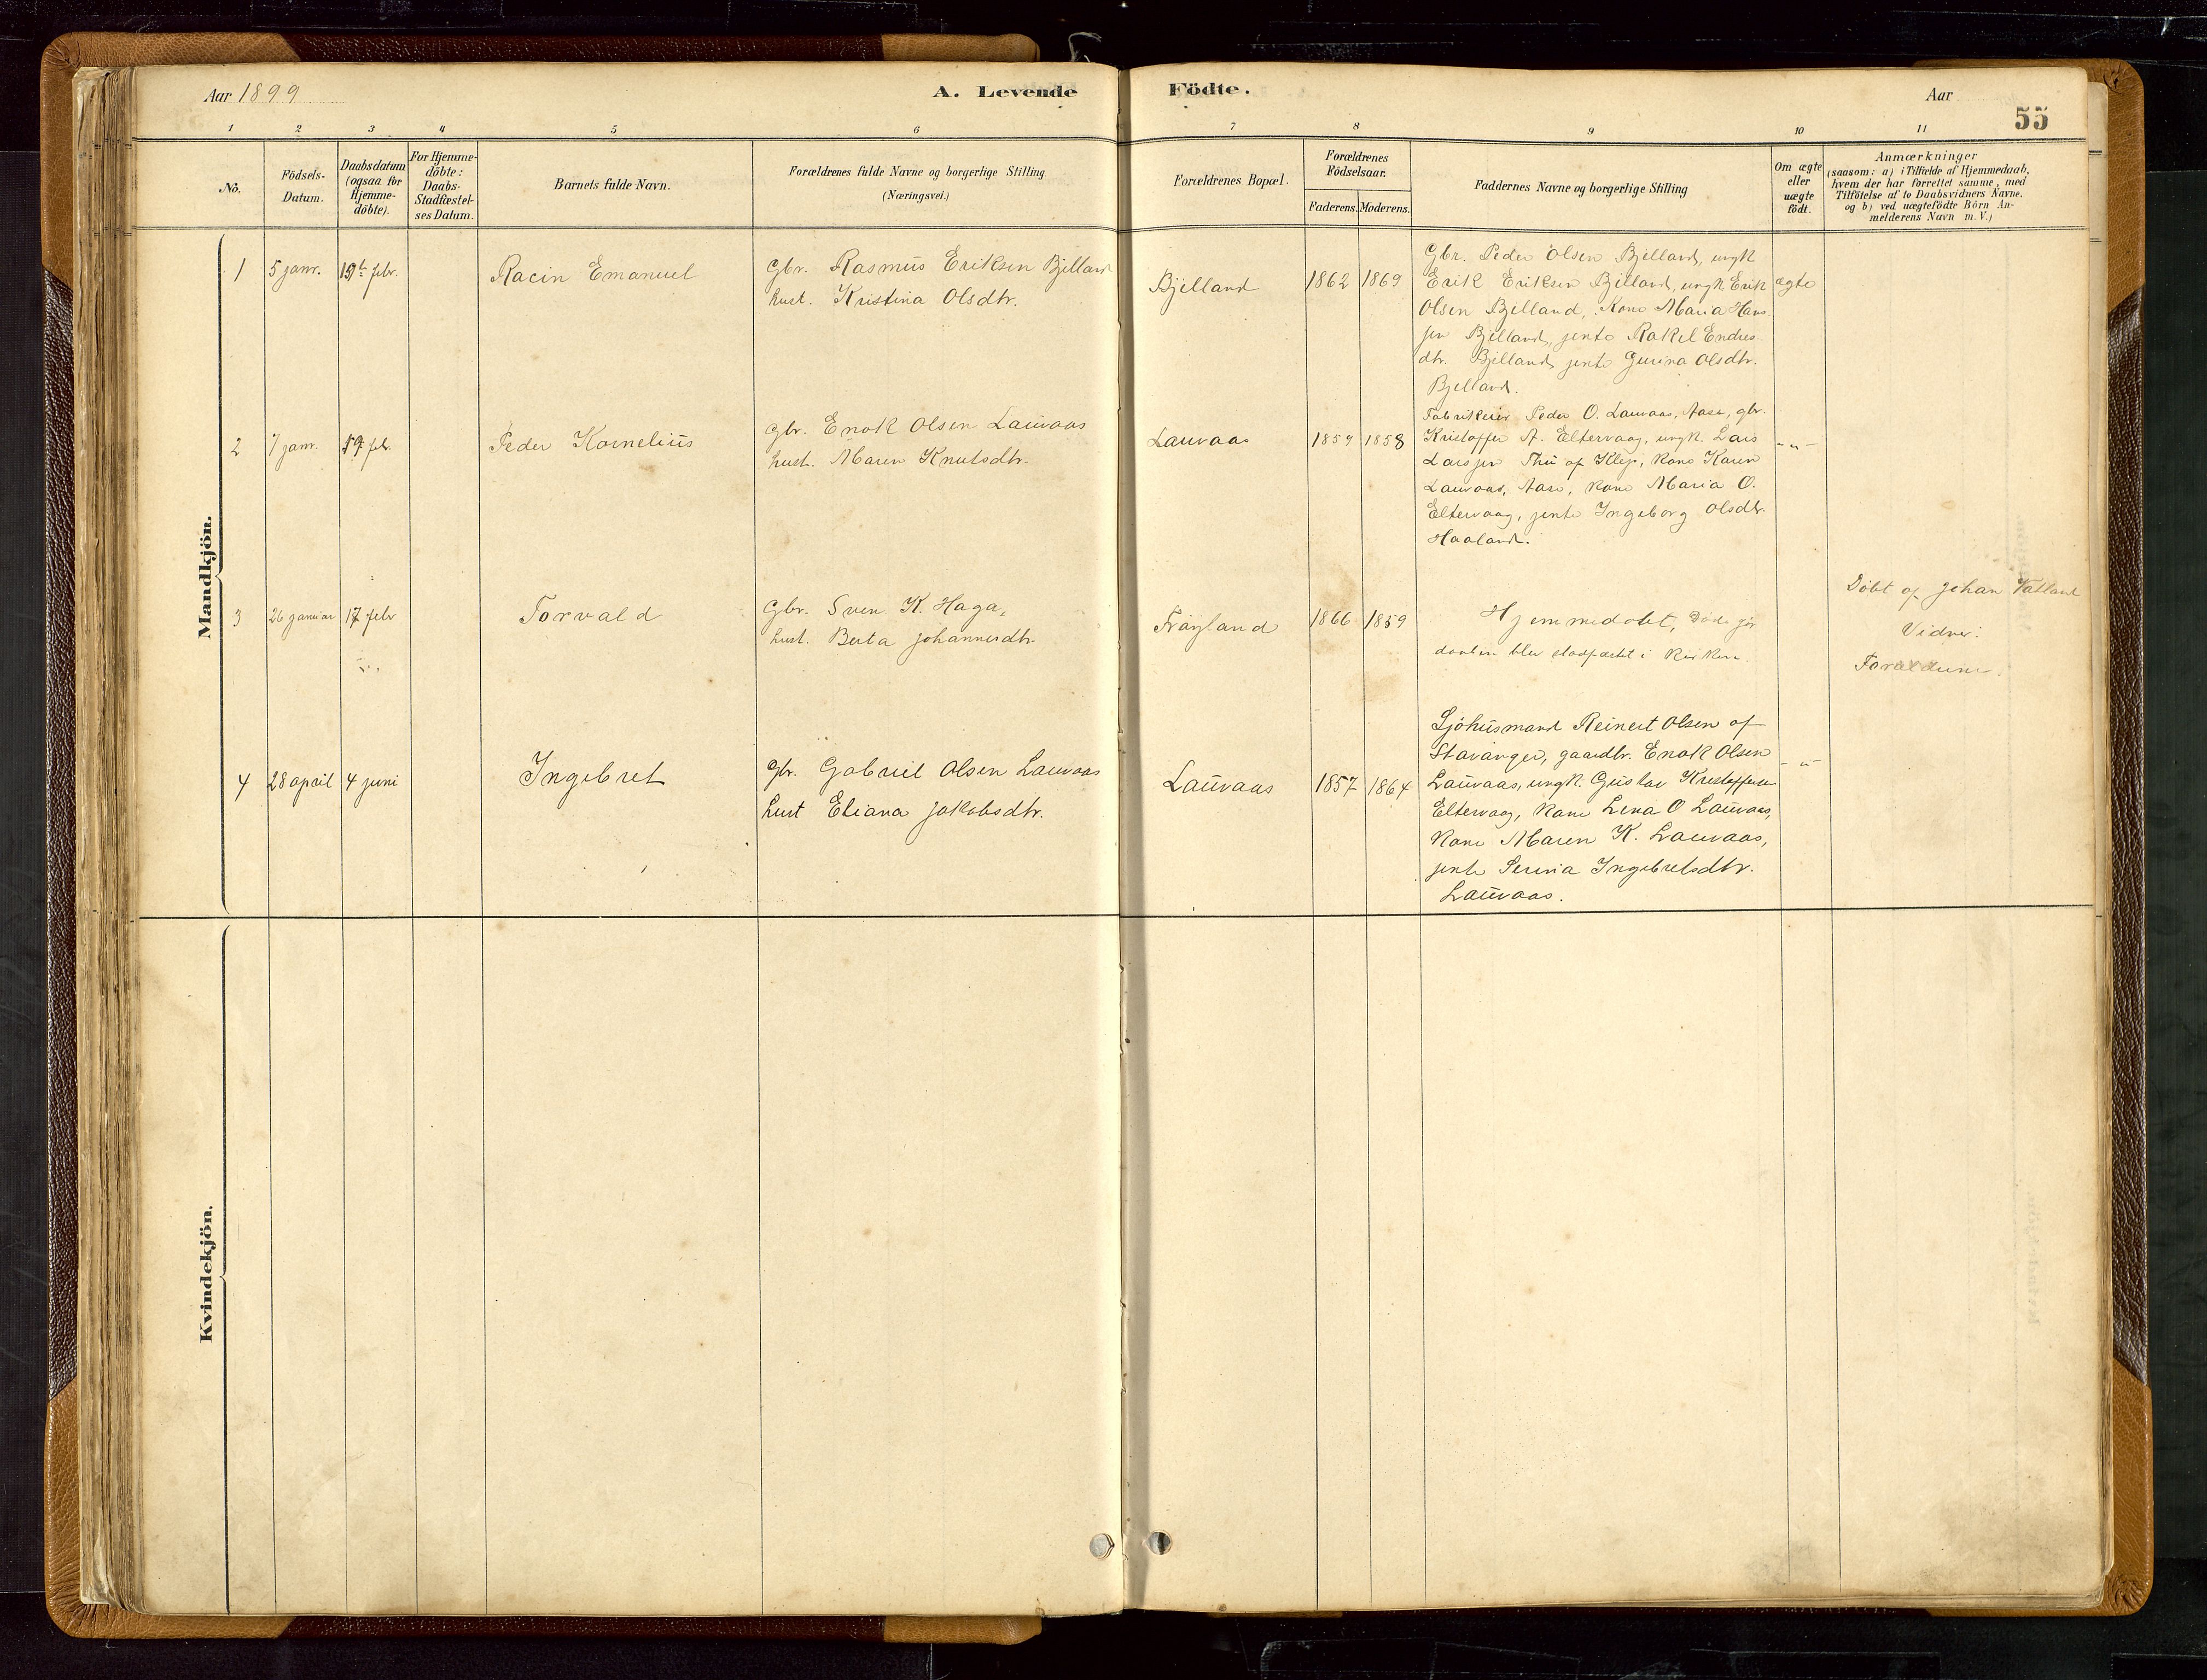 Aar 1899
A. Levende
Födte.
Aar
55
1 2 3 4 5 6 7 8 9 10 11
No.
Födsels-
Datum.
Daabsdatum
(ogsaa for
Hjemme-
döbte).
For Hjemme-
döbte:
Daabs-
Stadfæstel-
ses Datum.
Barnets fulde Navn.
Forældrenes fulde Navne og borgerlige Stilling
(Næringsvei.)
Forældrenes Bopæl.
Forældrenes
Födselsaar.
Faderens. Moderens.
Faddernes Navne og borgerlige Stilling
Om ægte
eller
uægte
födt.
Anmærkninger
(saasom: a) i Tilfælde af Hjemmedaab,
hvem der har forrettet samme, med
Tilföielse af to Daabsvidners Navne,
og b) ved uægtefödte Börn An-
melderens Navn m. V.)
Mandkjön.
1
5 janr.
19de febr.
Racin Emanuel
Gbr. Rasmus Eriksen Bjelland
hust. Kristina Olsdtr.
Bjelland
1862 1869
Gbr. Peder Olsen Bjelland, ungk
Erik Eriksen Bjelland, ungk Erik
Olsen Bjelland, Kone Maria Hans
sen Bjelland, jente Rakel Endres
dtr. Bjelland, jente Gurina Olsdtr.
Bjelland.
ægte
2
7 janr.
19 feb.
Peder Kornelius
Gbr. Enok Olsen Lauvaas
hust. Maren Knutsdtr.
Lauvaas
1859 1858
Fabrikeier Peder O. Lauvaas, Aase, gbr.
Kristoffer A. Eltervaag, ungk. Lars
Larssen Thu af Klep, kone Karen
Lauvaas, Aase, kone Maria O.
Eltervaag, jente Ingeborg Olsdtr.
Haaland.
-"-
3
26 januar
17 febr
Torvald
Gbr. Sven K. Haga,
hust. Berta Johannesdtr.
Frøyland
1866 1859
Hjemmedøbt, Døde før
daaben blev stadfæstet i Kirken.
Døbt af Johan Vatland
Vidner:
Forældrene.
4
28 april
4 juni
Ingebret
Gbr. Gabriel Olsen Lauvaas
hust Eliana Jakobsdtr.
Lauvaas
1857 1864
Sjøhusmand Reinert Olsen af
Stavanger, gaardbr. Enok Olsen
Lauvaas, ungk. Gustav Kristoffersen
Eltervaag, Kone Lena O Lauvaas,
Kone Maren K. Lauvaas,
jente Serina Ingebretsdtr.
Lauvaas.
-"-
Kvindekjön.